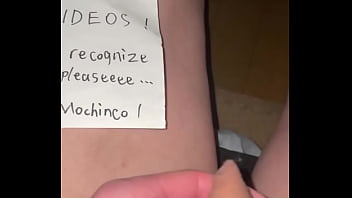 IDEOS !
recognize
pleaseeee ...
Mochinco !